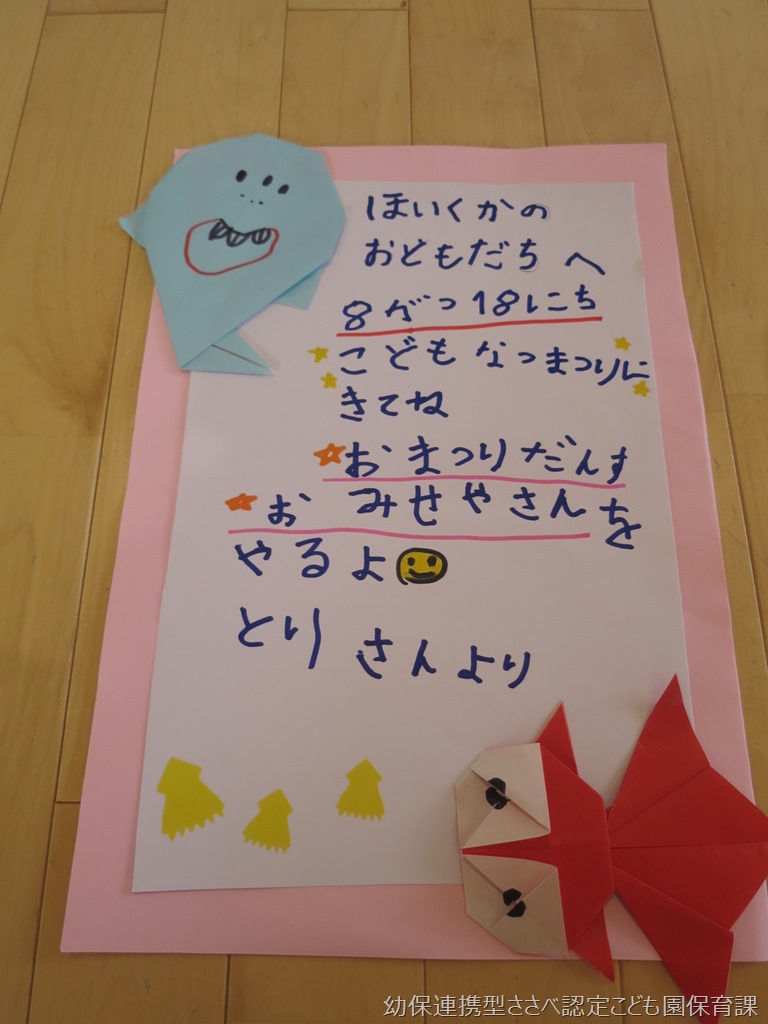 ほいくかの
おともだちへ
8がつ18にち
こどもなつまつりに
きてね
おまつりだんす
おみせやさんを
やるよ
とりさんより
幼保連携型ささべ認定こども園保育課